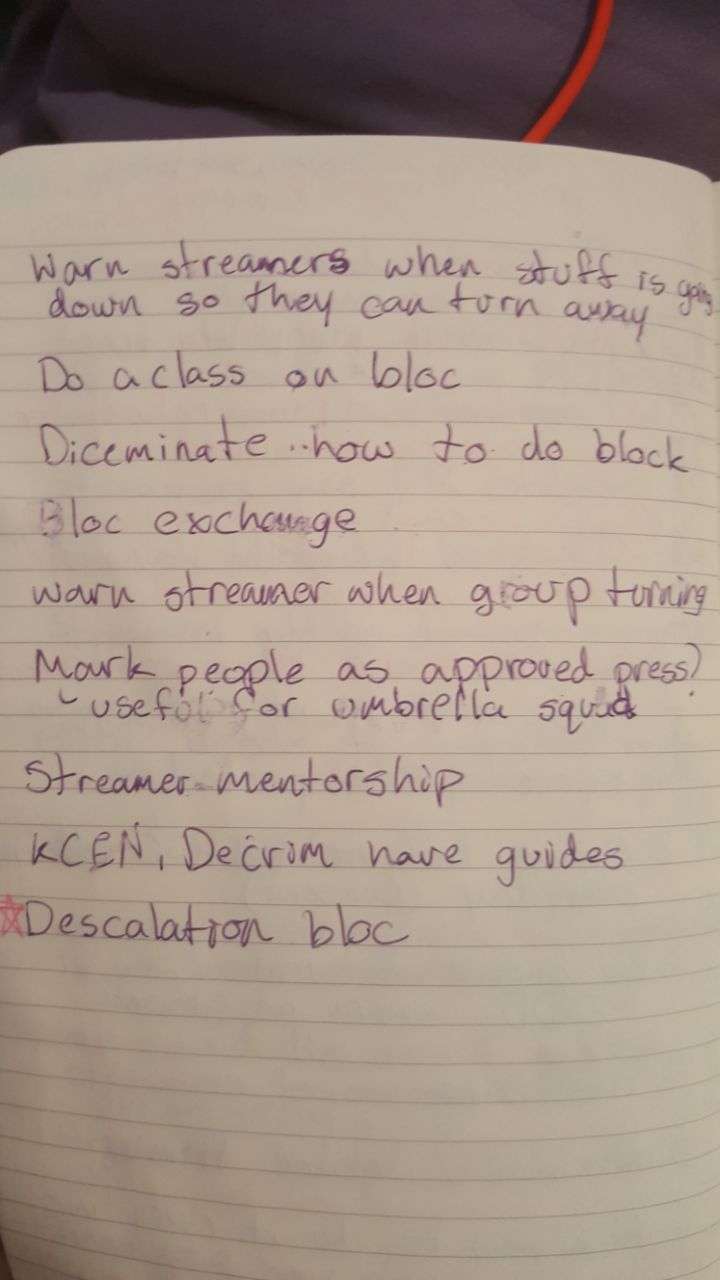 Warn streamers when stuff is going
down so they can turn away
Do a class on bloc
Diceminate..how to do block
Bloc exchange
warn streamer when group turning
Mark people as approved press?
useful for umbrella squad
Streamer mentorship
KCEN, Decrim have guides
Descalation bloc